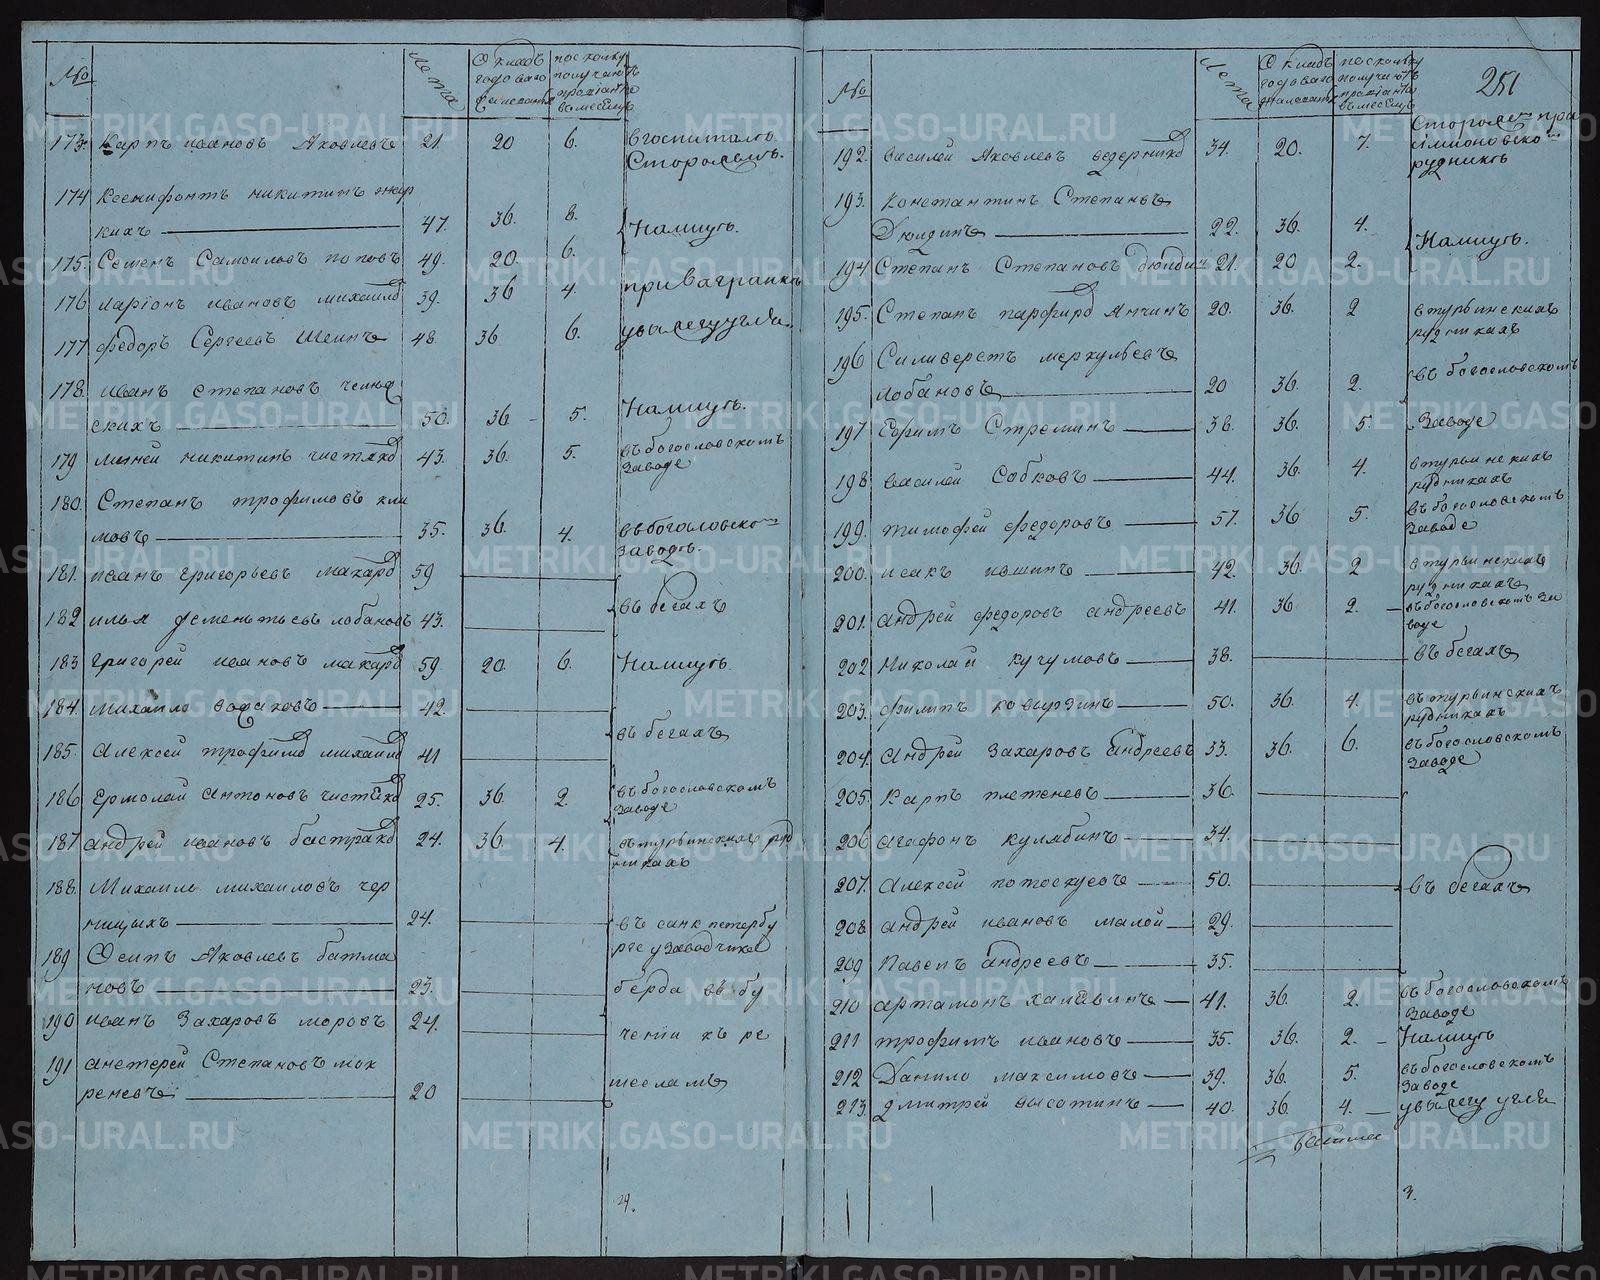 №
лета
Окладъ
годоваго
жалованья
посколку
получаютъ
провіанта
вмесецъ
173. Карпъ ивановъ Яковлевъ 21. 20 6. вгоспитале
Сторожемъ.
174 Ксенифонтъ никитинъ
кихъ 47. 36. 8. Напишуть.
175. Семенъ Самоиловъ поповъ 49. 20 6.
176 Ларіонъ ивановъ михаиловъ 39. 36 4. при
177 федоръ Сергеевъ Шеинъ 48. 36 6. увыжегу угля.
178. иванъ степановъ
скихъ 50. 36 5.
179 никитинъ чистяковъ 43. 36. 5. въ богословскомъ
Заводе
180. Степанъ трофимовъ кли
мовъ 35. 36. 4. въ богословско
заводъ.
181. иванъ григорьевъ макаровъ 59
182 илья дементьевъ лобановъ 43. въ бегахъ
183 григорей ивановъ макаровъ 59 20. 6.
184. михаило 42.
185. Алексей трофимовъ михаиловъ 41 въ бегахъ
186 Ермолай антоновъ чистяковъ 25. 36. 2. въ богословскомъ
Заводе
187 андрей ивановъ бастраковъ 24. 36. 4. въ турьинскихъ руд
никахъ
188. Михаило михаиловъ чер
ницыхъ 24. въ санкпетербу
рге узаводчика
189 Осипъ Яковлевъ батма
новъ 23. берда въ бу
190 иванъ Захаровъ моровъ 24. ченіи къ ре
191 Степановъ мок
реневъ 20 месламъ
24.
№
лета
Окладъ
годоваго
жалованья
посколку
получаютъ
провіанта
вмесецъ
251
192. василей Яковлевъ ведерниковъ 34. 20. 7. Сторожемъ при
рудникъ
193. Константинъ Степановъ
Дюлдинъ 22. 36. 4.
194 Степанъ Степановъ дюлдинъ 21. 20 2.
195. Степанъ парфировъ Анчинъ 20. 36. 2 втурьинскихъ
рудникахъ
196 Силиверстъ меркульевъ
лобановъ 20 36. 2. въ богословскомъ
197 Ефимъ Стреминъ 38. 36. 5. Заводе
198 василей Собковъ 44. 36. 4. втурьинскихъ
рудникахъ
199. тимофей федоровъ 57. 36 5. въ богословскомъ
Заводе
200. исакъ ившинъ 42. 36. 2 втурьинскихъ
рудникахъ
201. андрей федоровъ андреевъ 41. 36 2. въ богословскомъ за
воде
202 Николай кучумовъ 38. въ бегахъ
203. филипъ ковурзинъ 50. 36. 4. въ турьинскихъ
рудникахъ
204. Андрей Захаровъ андреевъ 33. 36. 6. въ богословскомъ
Заводе
205. Карпъ плетеневъ 36.
206 агафонъ кулябинъ 34.
207. Алексей потоскуевъ 50. въ бегахъ
208. андрей ивановъ малой 29.
209 Павелъ андреевъ 35.
210 артамонъ халявинъ 41. 36. 2. въ богословскомъ
Заводе
211 трофимъ ивановъ 35. 36. 2.
212 Данило максимовъ 39. 36. 5. въ богословскомъ
Заводе
213. дмитрей высотинъ 40. 36. 4. увыжегу угля
3.
METRIKI.GASO-URAL.RU